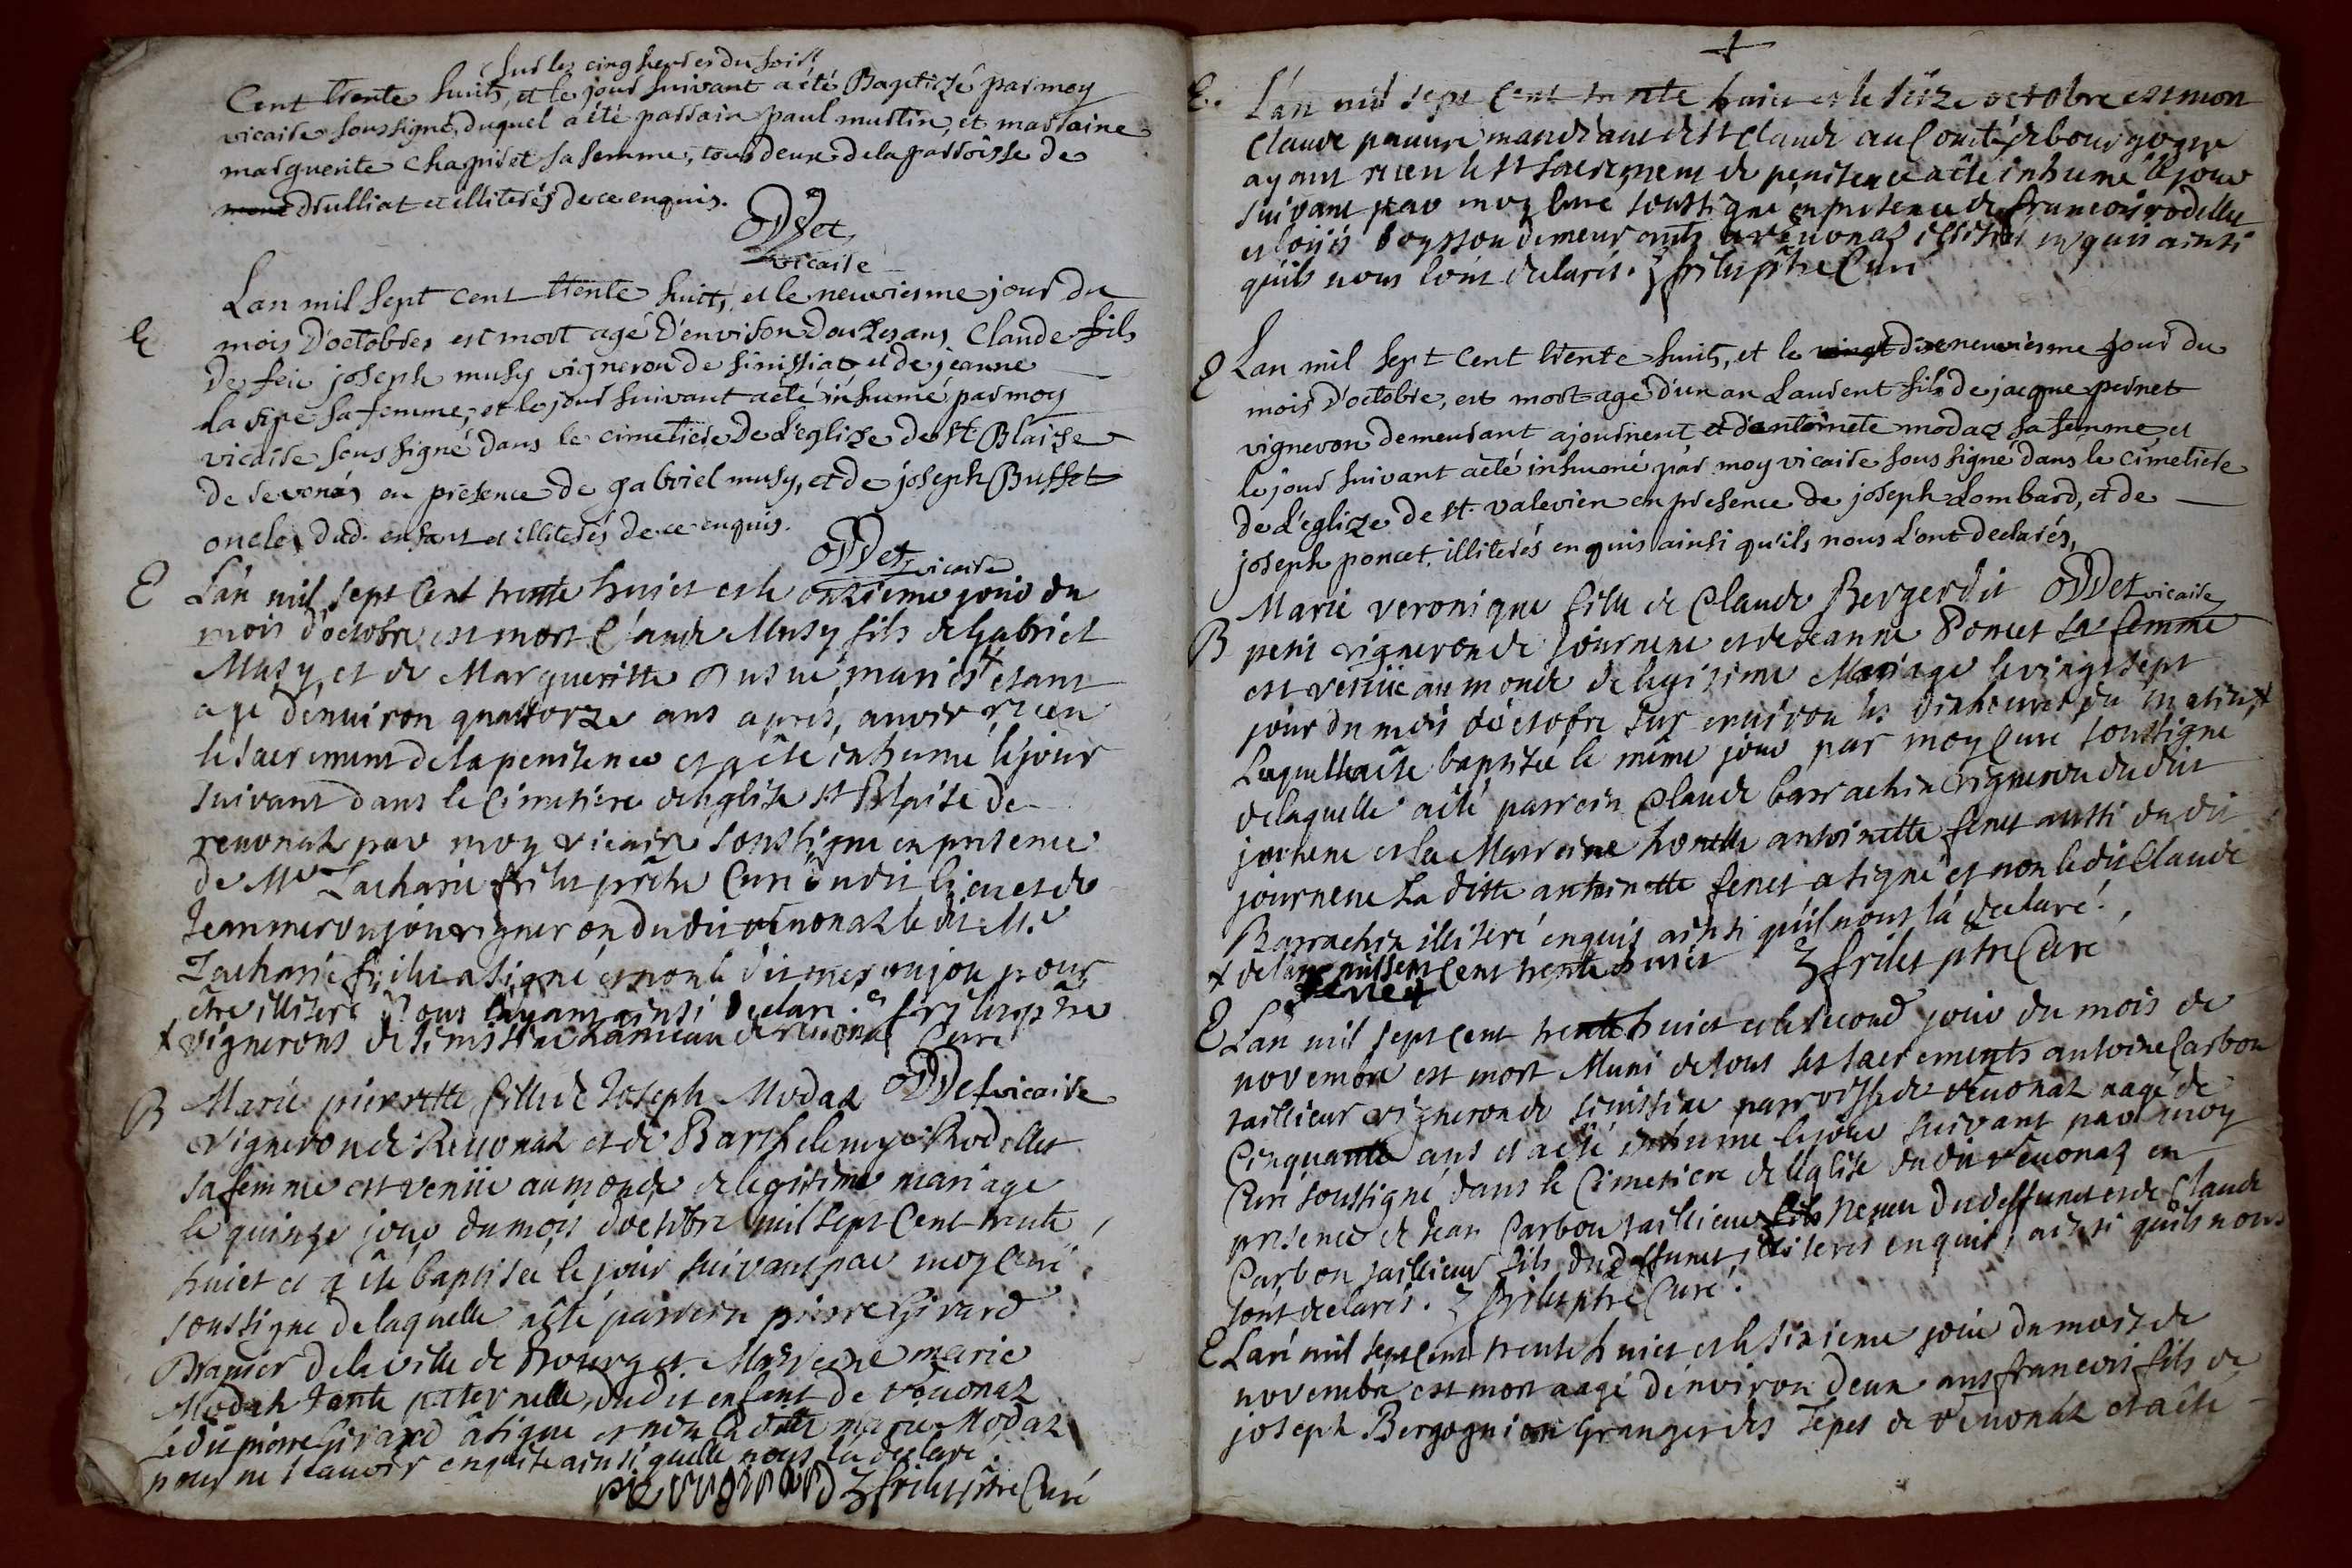 sur les cinq heures du soir
Cent trente huit, et le jour suivant a été Baptizé par moy
vicaire soussigné, duquel a été parrain paul multin, et marraine
marguerite Chapiset sa femme, tous deux de la parroisse de
druilliat et illiterés de ce enquis.
oddet
vicaire
E
Lan mil sept cent trente huit, et le neuviesme jour du
mois D'octobre, est mort agé D'environ douze ans Claude fils
De feu joseph musy vigneron de simissiat et de jeanne
sa femme, et le jour suivant a été inhumé par moy
vicaire sous signé dans le cimetiere De L'eglize de St Blaize
De revonas en présence de gabriel musy, et de joseph Buffet
oncles dud. enfant et illiterés de ce enquis.
oddet vicaire
E Lán mil sept Cent trente huict et le onzieme jour du
mois d'octobre est mort Claude Musy fils de Gabriel
Musy, et de Margueritte mariés + etant
agé denuiron quattorze ans apres, auoir receu
le sacrement de la penitence et a été inhumé le jour
suivant dans le Cimetiere de leglise st Blaise de
reuonas par moy vicaire soussigné en presence
de Mre Zacharie frilet prêtre Curé du dit lieu et de
Jean vigneron du dit reuonas le dit Mre
Zacharie frilet a signé et non le dit pour
être illiteré Nous layant ainsi declaré. frilet ptre
+ vignerons de simissiat hameau de reuonas Curé
oddet vicaire
B Marie pierrette fille de Joseph Modas
vigneron de Reuonas et de Barthelemye Rodellet
sa femme est venüe au monde de legitime mariage
le quinze jour du mois doctobre mil sept Cent trente
huict et a été baptisée le jour suivant par moy Curé
soussigné de laquelle a été parrein pierre Girard
Drapier de la ville de Bourg et Marreine marie
Modas tante paternelle du dit enfant de reuonas
Le dit pierre Girard â signé et non la ditte marie Modas
pour ne scauoir enquise ainsi quelle nous la declaré.
Z frilet ptre Curé
+
E. Lán mil sept Cent trente huict et le seize octobre est mort
Claude pauure mandiant de St Claude au Comté de bourgogne
ayant receu le st sacrement de penitence a été inhumé le jour
suivant par moy Curé soussigné en presence de francois rodellet
et loüis boysson demeurants a reuonas illiterés enquis ainsi
quils nous lont declarés. Z frilet ptre Curé
E Lan mil sept cent trente huit, et le vingt dixneuviesme jour du
mois D'octobre, est mort agé d'un an Laurent fils de jacque pernet
vigneron demeurant a journent et d'antoinete modas sa femme, et
le jour suivant a été inhumé par moy vicaire sous signé dans le cimetiere
de L'eglize de st. valerien en presence de joseph Lombard, et de
joseph poncet. illiterés enquis ainsi qu'ils nous L'ont declarés,
oddet vicaire
B Marie veronique fille de Claude Berger dit
petit vigneron de journent et de Jeanne Poncet sa femme
est venüe au monde de legitime Mariage le vingt sept
jour du mois doctobre sur enuiron les dix heures du matin, +
Laquelle a été baptisée le même jour par moy Curé soussigné
de laquelle a été parrein Claude barrachin vigneron du dit
journent et la Marreine honette antoinette fenet aussi du dit
journent La ditte antoinette fenet a signé et non le dit Claude
Barrachin illiteré enquis ainsi quil nous la declaré.
+ de lan mil sept Cent trente huict Z frilet ptre Curé
fenet
E Lan mil sept Cent trente huict et le second jour du mois de
novembre est mort Muni de tous les sacrements antoine Carbon
taillieur vigneron de simissiat parroisse de reuonas aagé de
Cinquante ans et a été inhumé le jour suivant par moy
Curé soussigné dans le Cimetiere de leglise du dit reuonas en
presence de Jean Carbon taillieur fils neueu du deffunct et de Claude
Carbon taillieur fils du deffunct, illiteres enquis, ainsi quils nous
lont declarés. Z frilet ptre Curé.
E Lan mil sept Cent trente huict et le sixieme jour du mois de
novembre est mort aagé denviron deux ans francois fils de
joseph Bergognion Granger des Tepes de reuonas et a été